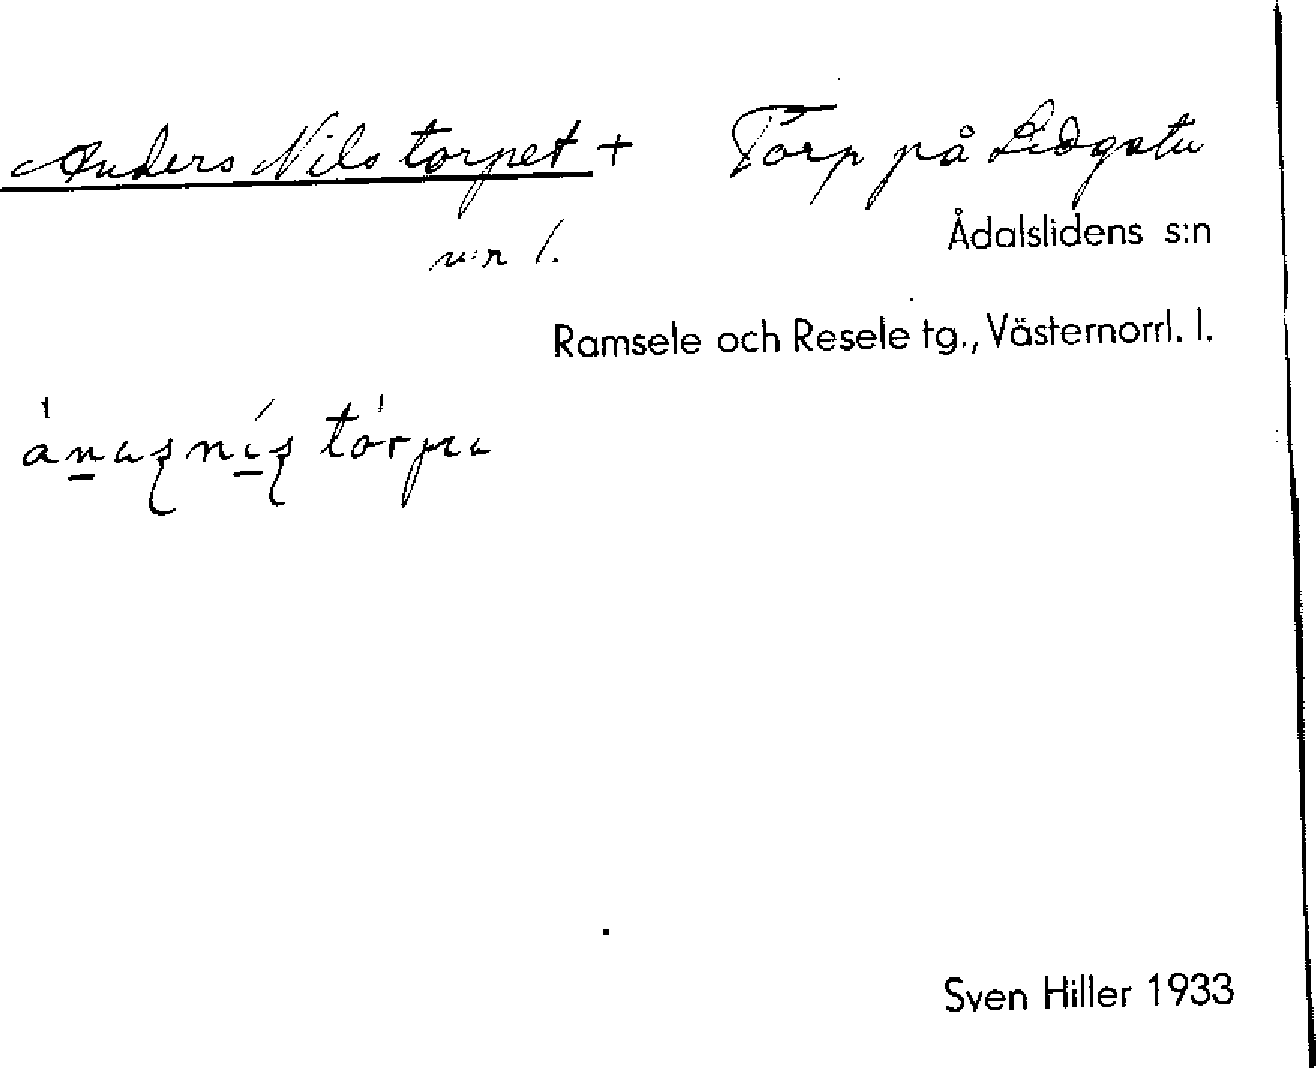 Anders Nils torpet + Torp på Lidgatu
u:r 1.
Ådalslidens s:n
Ramsele och Resele tg., Västernorrl. l.
Sven Hiller 1933